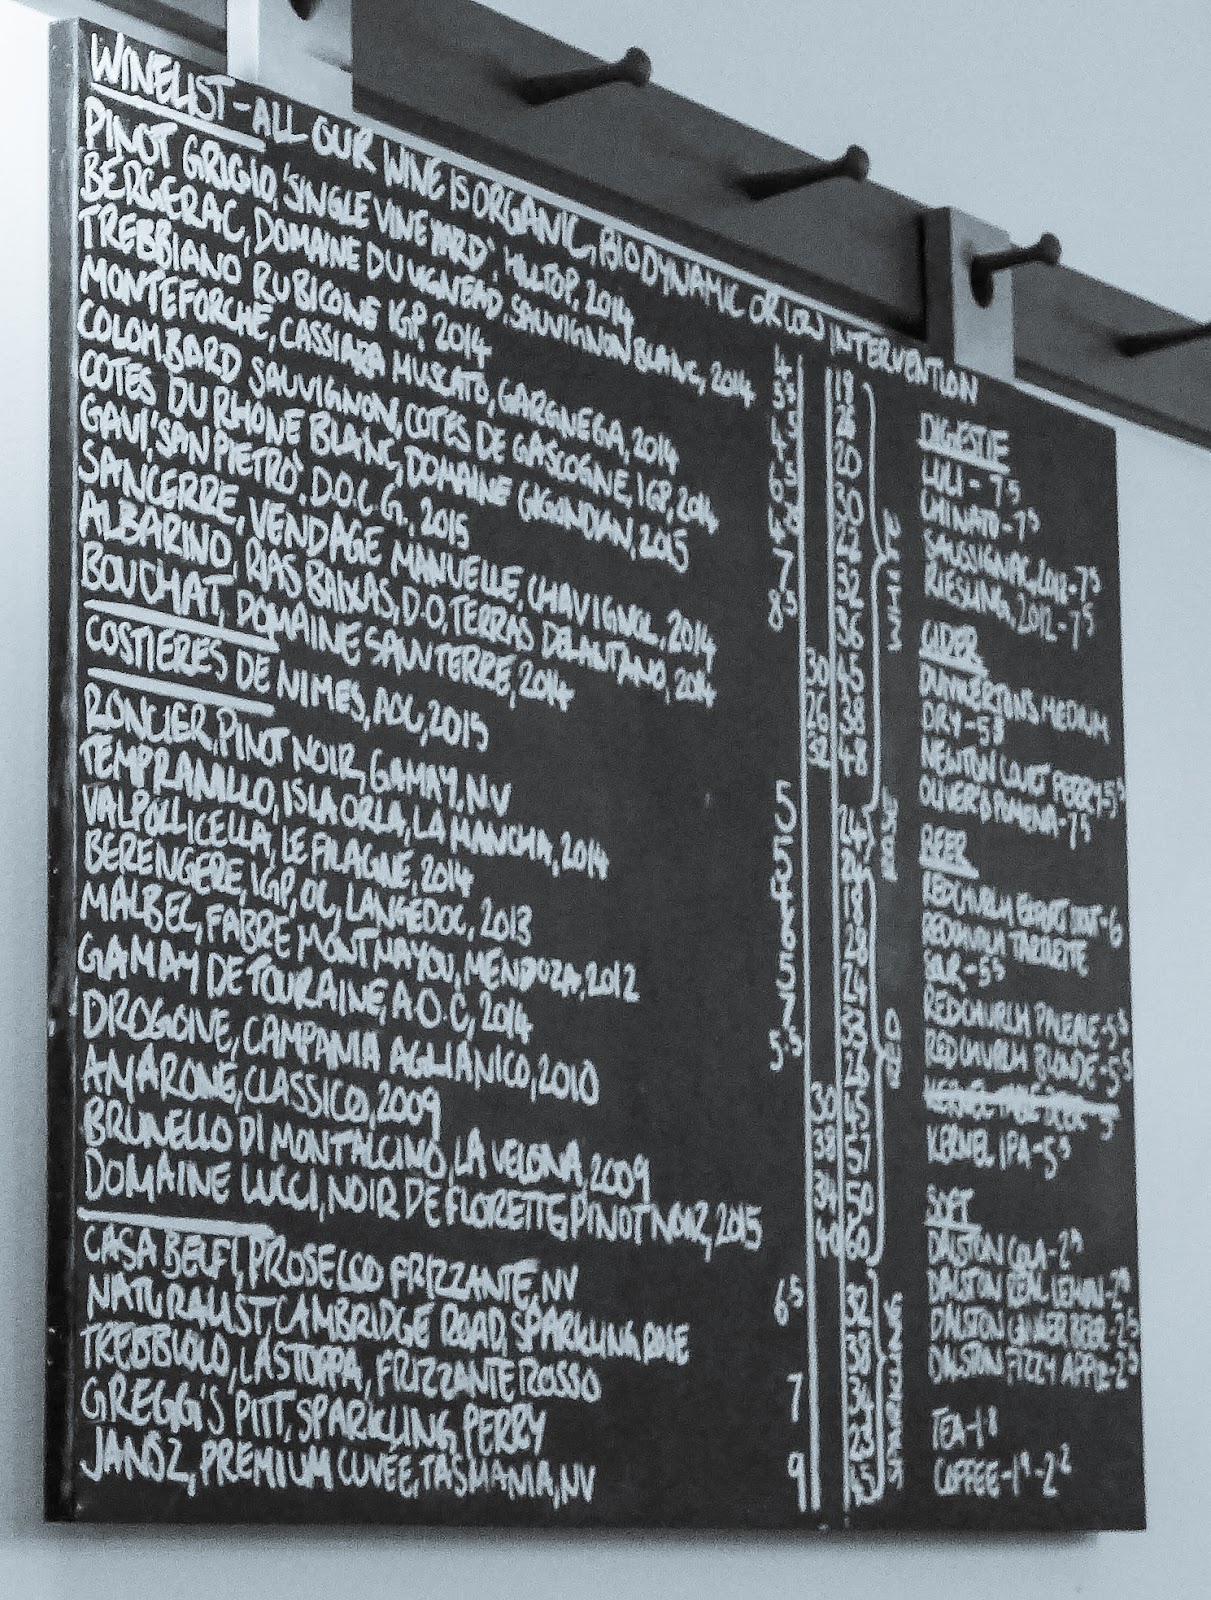 WINELIST - ALL OUR WINE IS ORGANIC, BIODYNAMIC OR LOW INTERVENTION
PINOT GRIGIO, 'SINGLE VINEYARD'. HILLTOP, 2014
BERGERAC, DOMAINE DU VIGNEAD. SAUVIGNON BLANC, 2014
TREBBIANO RUBICONE IGP, 2014
MONTEFORCHE, CASSIARA MUSCATO, GARGNEGA, 2014
COLOMBARD SAUVIGNON, COTES DE GASCOGNE, IGP, 2014
COTES DU RHONE BLANC, DOMAINE GIGONDAN, 2015
GAVI 'SAN PIETRO'. D.O.C.G., 2015
SANCERRE, VENDAGE MANUELLE, CHAVIGNOL, 2014
ALBARINO, RIAS BAIXAS, D.O, TERRAS DELAUTANO, 2014
BOUCHAT, DOMAINE SAUVTERRE, 2014
COSTIERES DE NIMES, AOC, 2015
RONCIER, PINOT NOIR, GAMAY, NV
TEMPRANILLO, ISLA ORLA, LA MANCHA, 2014
VALPOLLICELLA, LE FILAGNE, 2014
BERENGERE, IGP, OC, LANGEDOC, 2013
MALBEC, FABRE MONTMAYOU, MENDOZA, 2012
GAMAY DE TOURAINE, A.O.C, 2014
DROGONE, CAMPANIA AGLIANICO, 2010
AMARONE, CLASSICO, 2009
BRUNELLO DI MONTALCINO, LA VELONA, 2009
DOMAINE LUCCI, NOIR DE FLORETTE PINOT NOIR, 2015
CASA BELFI, PROSECCO FRIZZANTE, NV 6.5 32
NATURALIST, CAMBRIDGE ROAD, SPARKLING ROSE 38
TREBBIOLO, LA STOPPA, FRIZZANTE ROSSO 7 34
GREGG'S PITT, SPARKLING PERRY
JANSZ, PREMIUM CUVEE, TASMANIA, NV 9 45
WHITE
ROSE
RED
SPARKLING
DIGESTIF
LULI - 7.5
CHINATO - 7.5
SAUSSIGNAC, 2012 - 7.5
RIESLING, 2012 - 7.5
CIDER
DUNKERTONS MEDIUM
DRY - 5.5
NEWTON COURT PERRY - 5.5
OLIVER'S POMONA - 7.5
BEER
REDCHURCH EXPORT STOUT - 6
REDCHURCH TARTLETTE
SOUR - 5.5
REDCHURCH PALE ALE - 5.5
REDCHURCH BLONDE - 5.5
KERNEL TABLE BEER - 5
KERNEL IPA - 5.5
SOFT
DALSTON COLA - 2.9
DALSTON REAL LEMON - 2.9
DALSTON GINGER BEER - 2.5
DALSTON FIZZY APPLE - 2.5
TEA - 1.8
COFFEE - 1.9 - 2.2